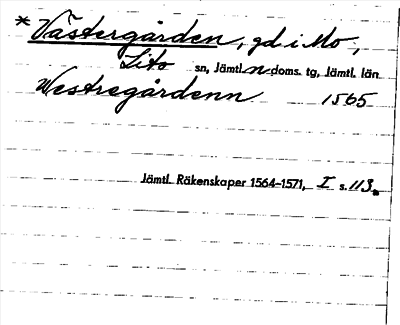 * Västergården, gd i Mo,
Lito sn, Jämtl. n doms. tg, Jämtl. län
Westregårdenn 1565
Jämtl. Räkenskaper 1564-1571, I s. 113.